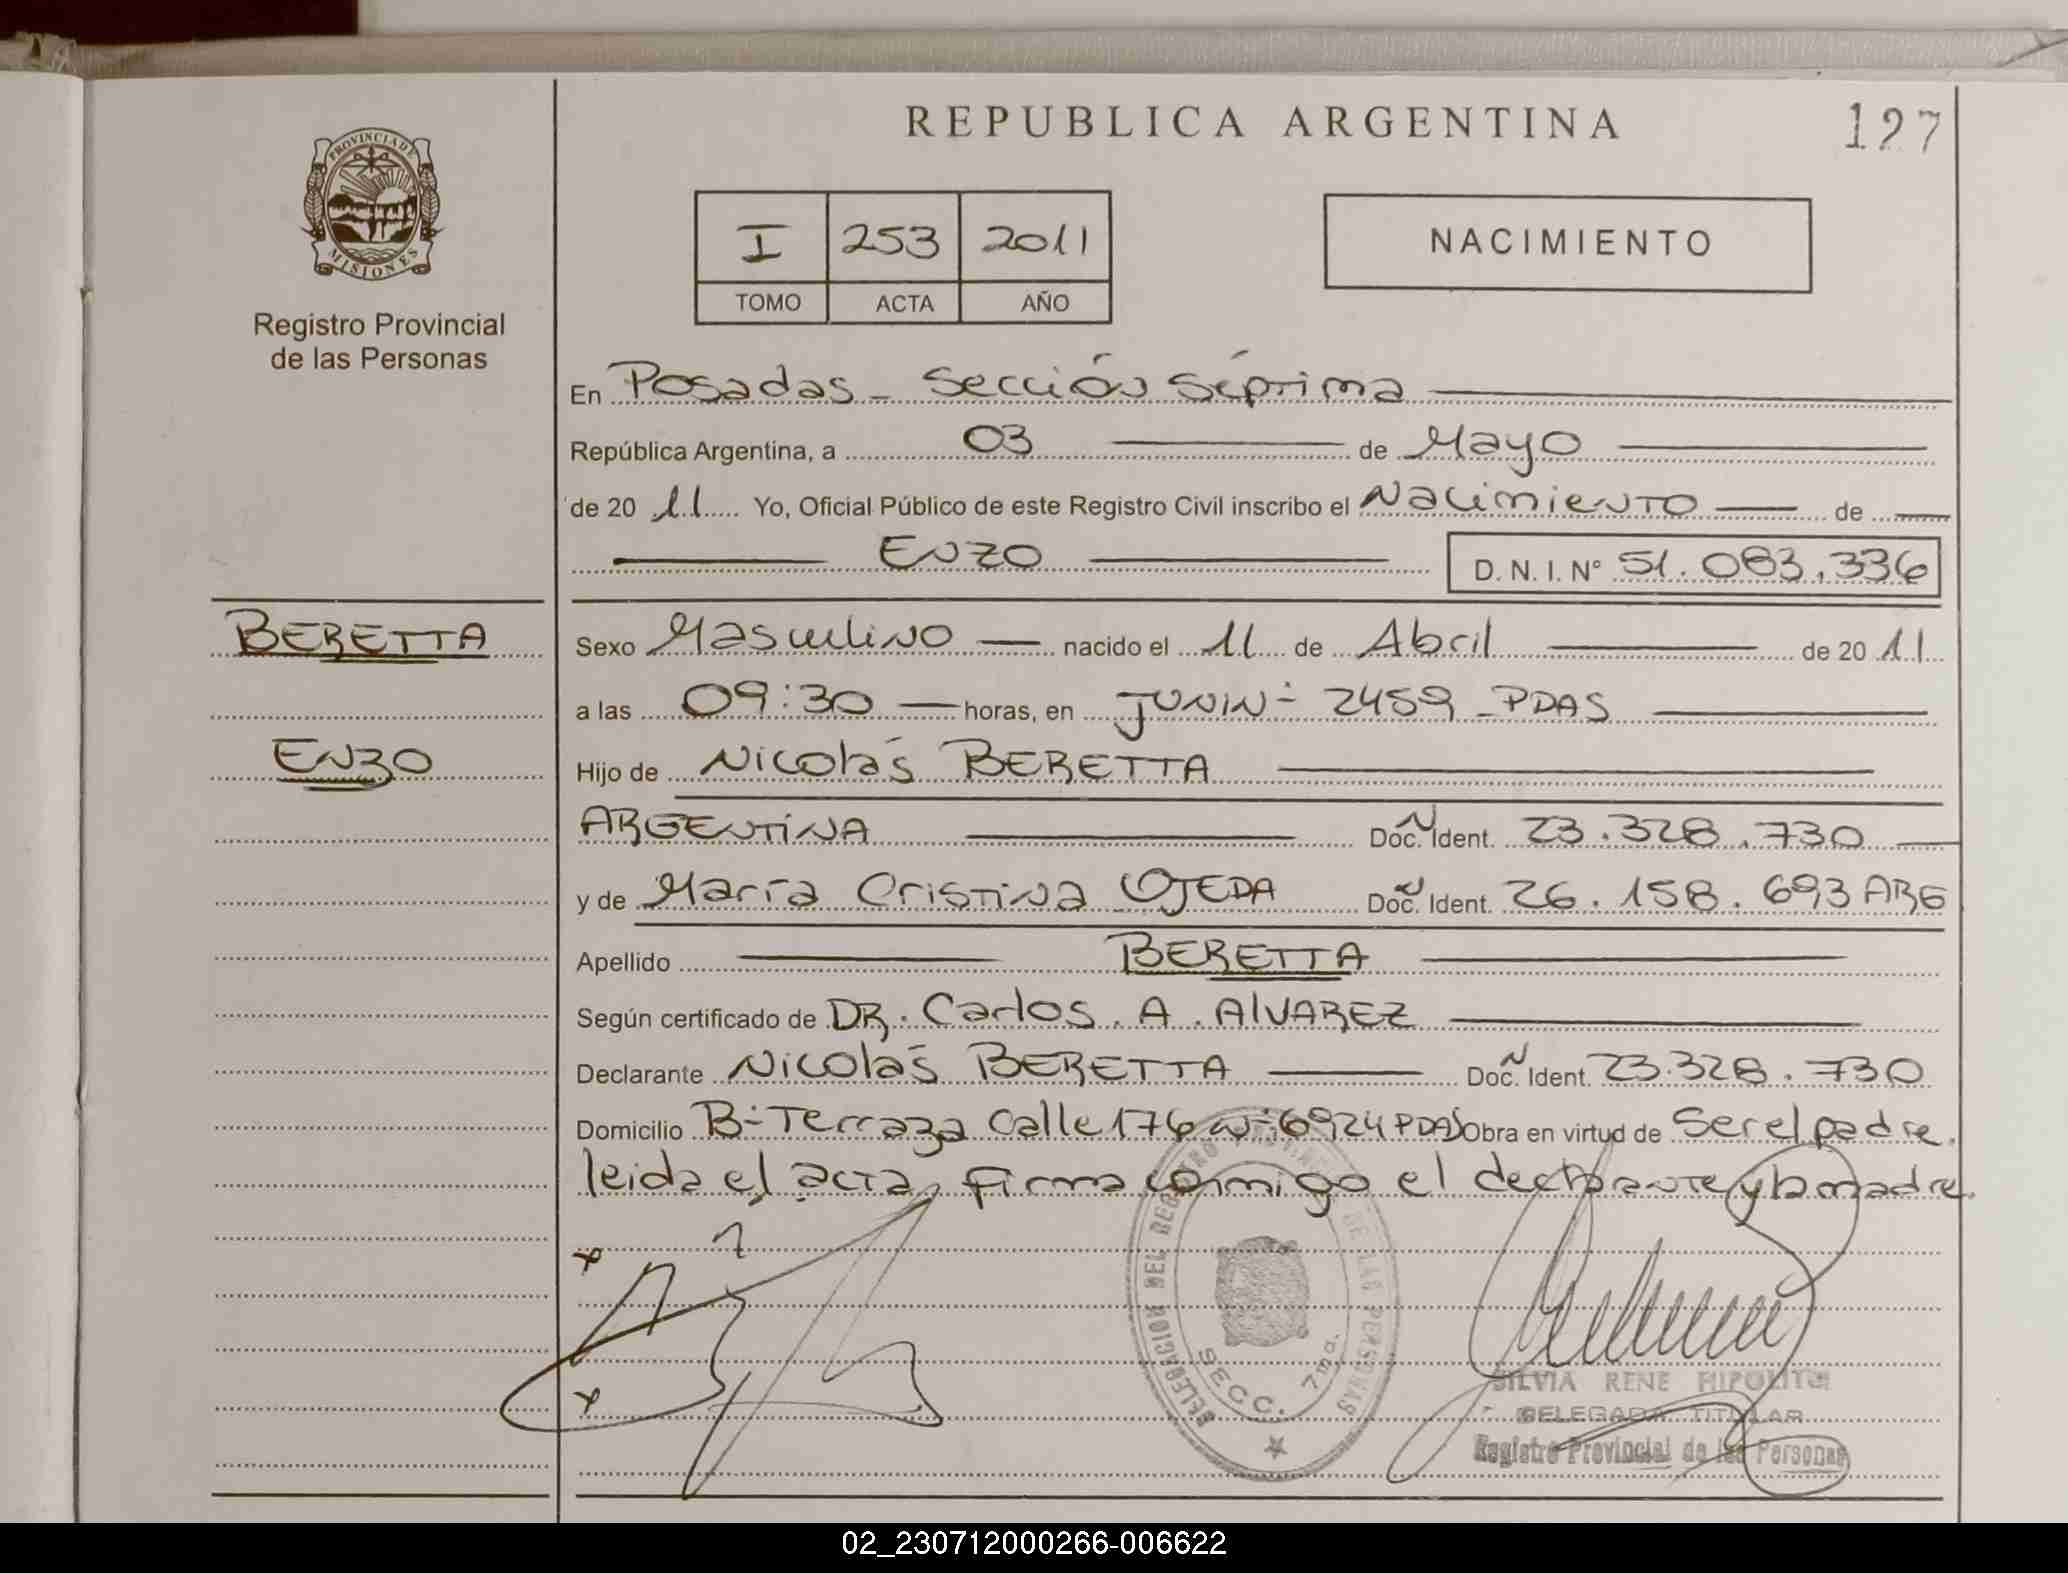 REPUBLICA ARGENTINA
127
PROVINCIA DE
MISIONES
Registro Provincial
de las Personas
I 253 2011
TOMO ACTA AÑO
NACIMIENTO
En Posadas - Sección Séptima
República Argentina, a 03 de Mayo
de 20 11 Yo, Oficial Público de este Registro Civil inscribo el Nacimiento de
ENZO D. N. I. N° 51.083.336
BERETTA
ENZO
Sexo Masculino nacido el 11 de Abril de 20 11
a las 09:30 horas, en JUNIN - 2459 - PDAS
Hijo de Nicolás BERETTA
ARGENTINA Doc. Ident. 23.328.730
y de María Cristina OJEDA Doc. Ident. 26.158.693 ARG
Apellido BERETTA
Según certificado de DR. Carlos. A. AlVAREZ
Declarante Nicolás BERETTA Doc. Ident. 23.328.730
Domicilio B- Terraza Calle 176 N- 6924 PDAS Obra en virtud de Ser el padre.
leida el acta, firma conmigo el declarante y la madre.
DELEGACION DEL REGISTRO PROVINCIAL DE LAS PERSONAS
SECC. 7ma.
SILVIA RENE HIPOLITO
DELEGADA TITULAR
Registro Provincial de las Personas
02_230712000266-006622